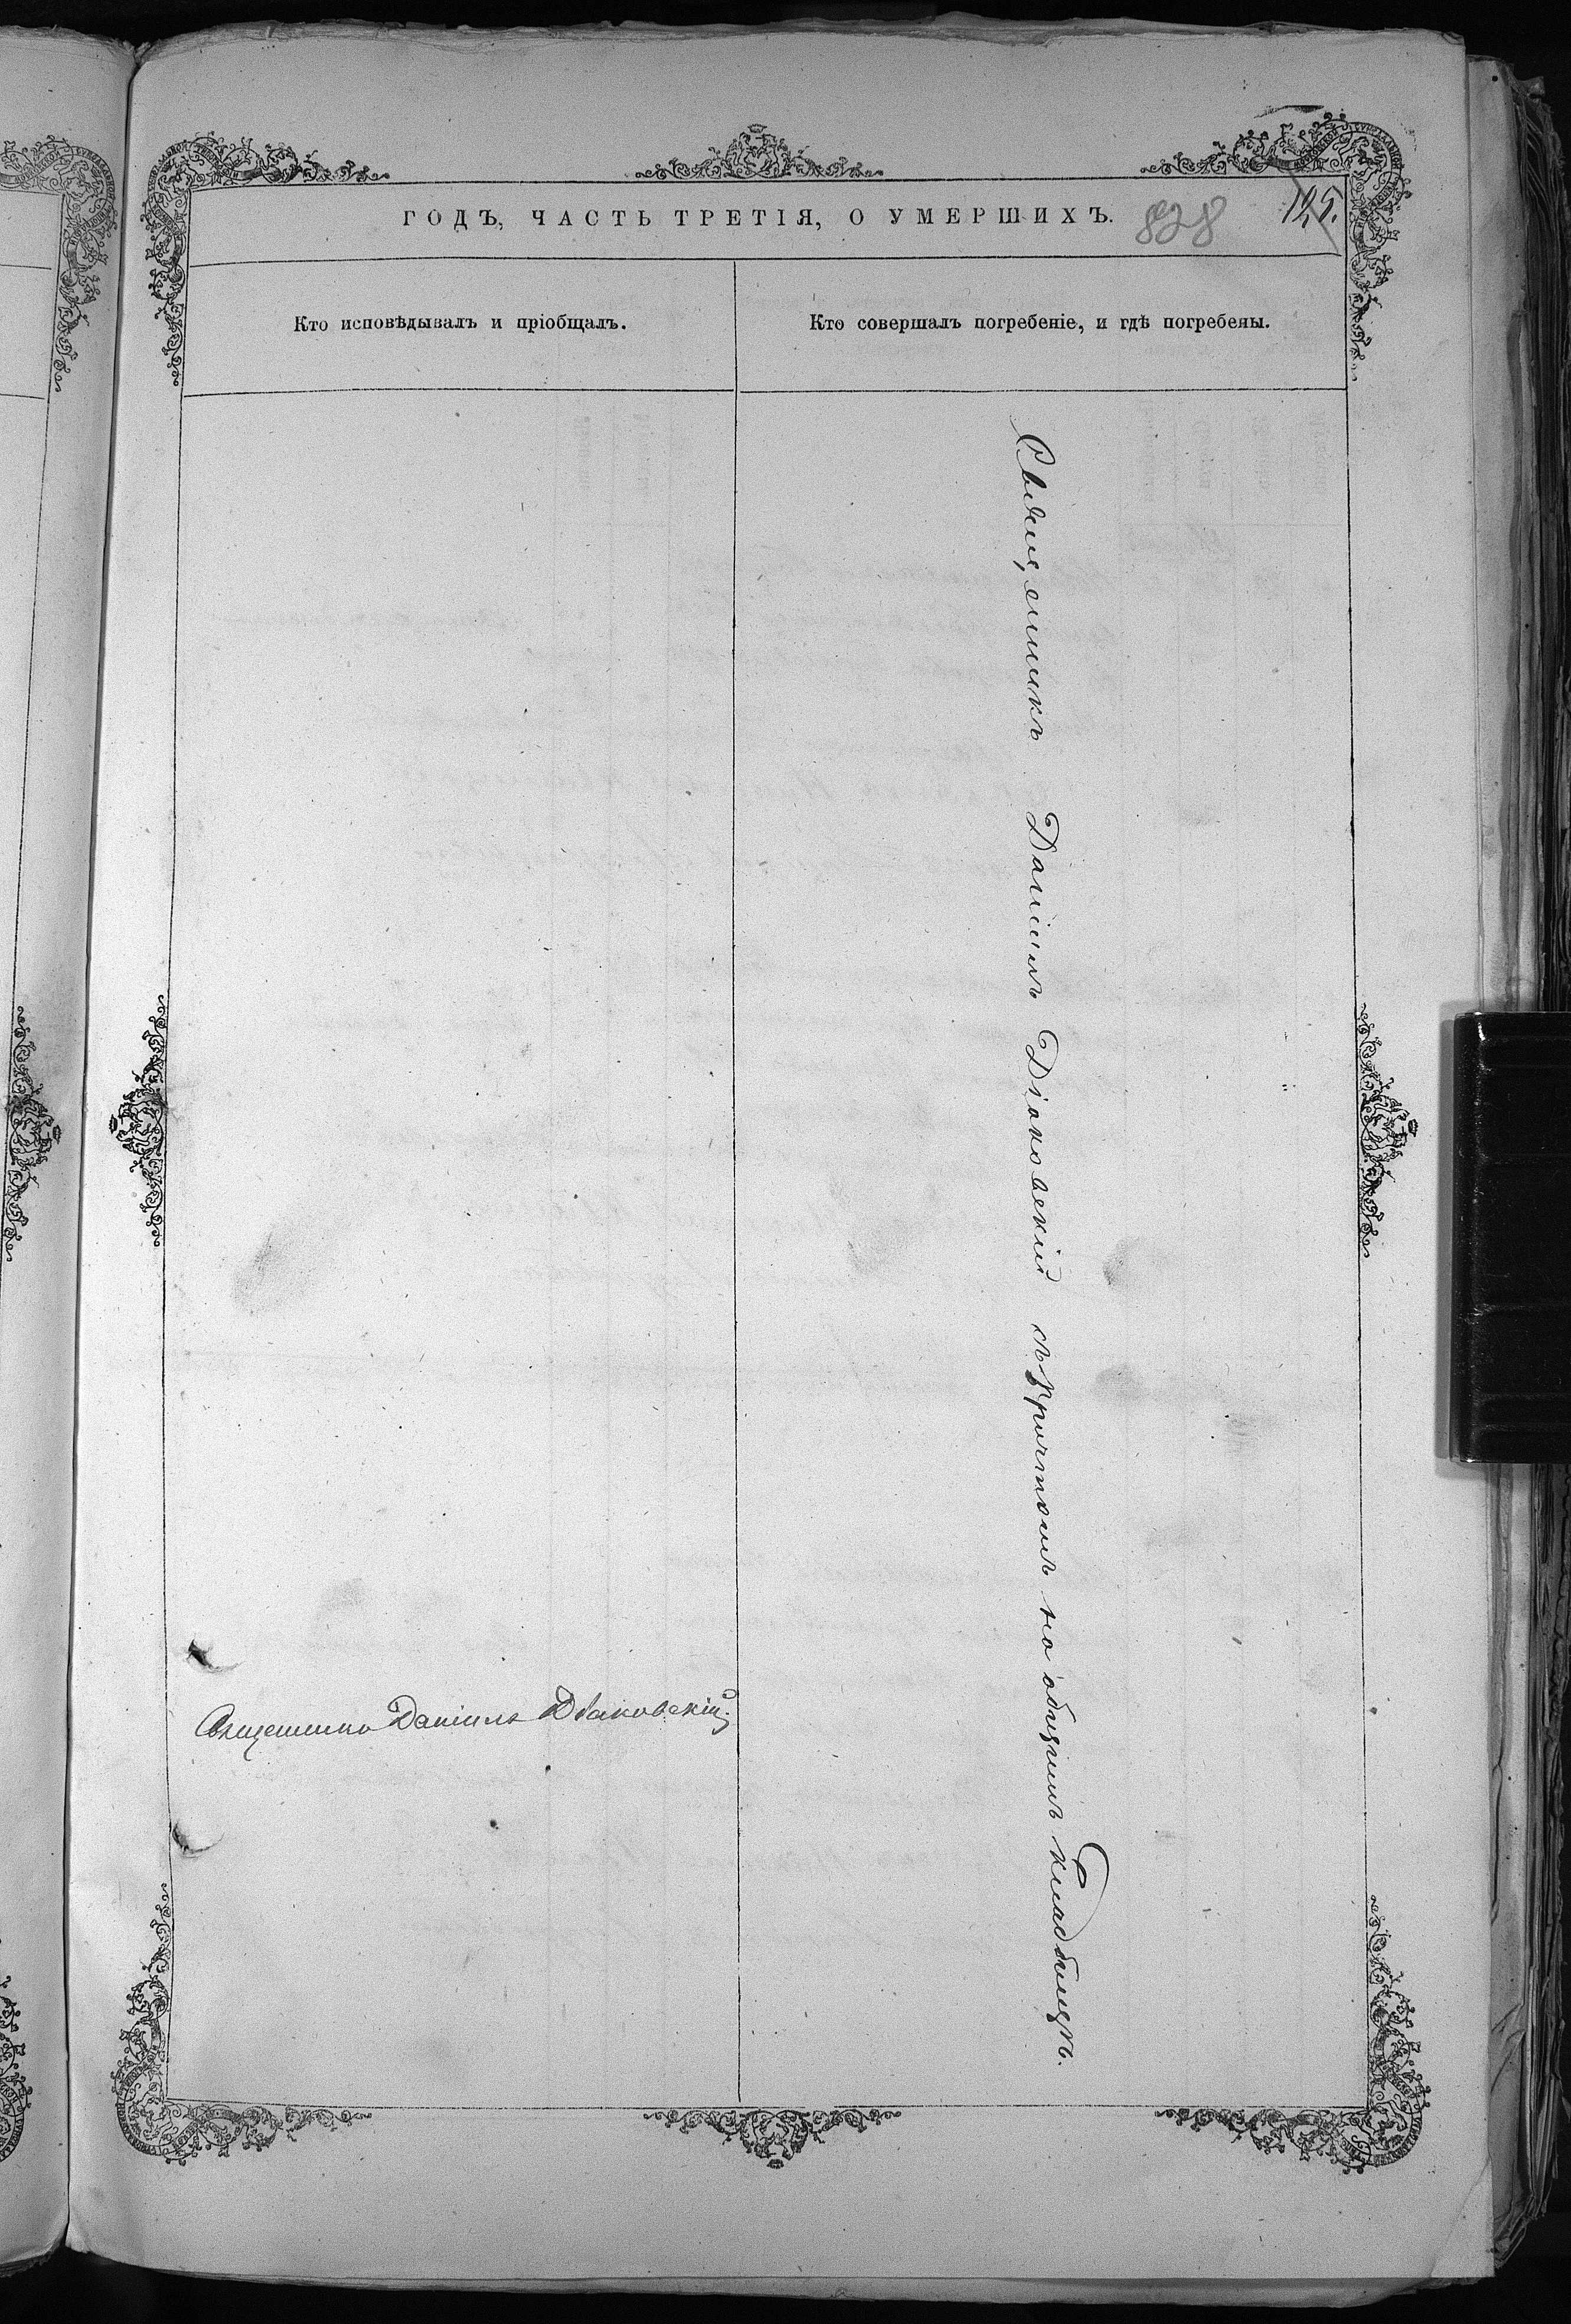 ГОДЪ, ЧАСТЬ ТРЕТІЯ, О УМЕРШИХЪ.
828
125.
Кто исповѣдывалъ и пріобщалъ.
Кто совершалъ погребеніе, и гдѣ погребены.
Священникъ Даніилъ Діаковскій съ причтомъ на общимъ кладбищѣ.
Священникъ Даніилъ Діаковскій.